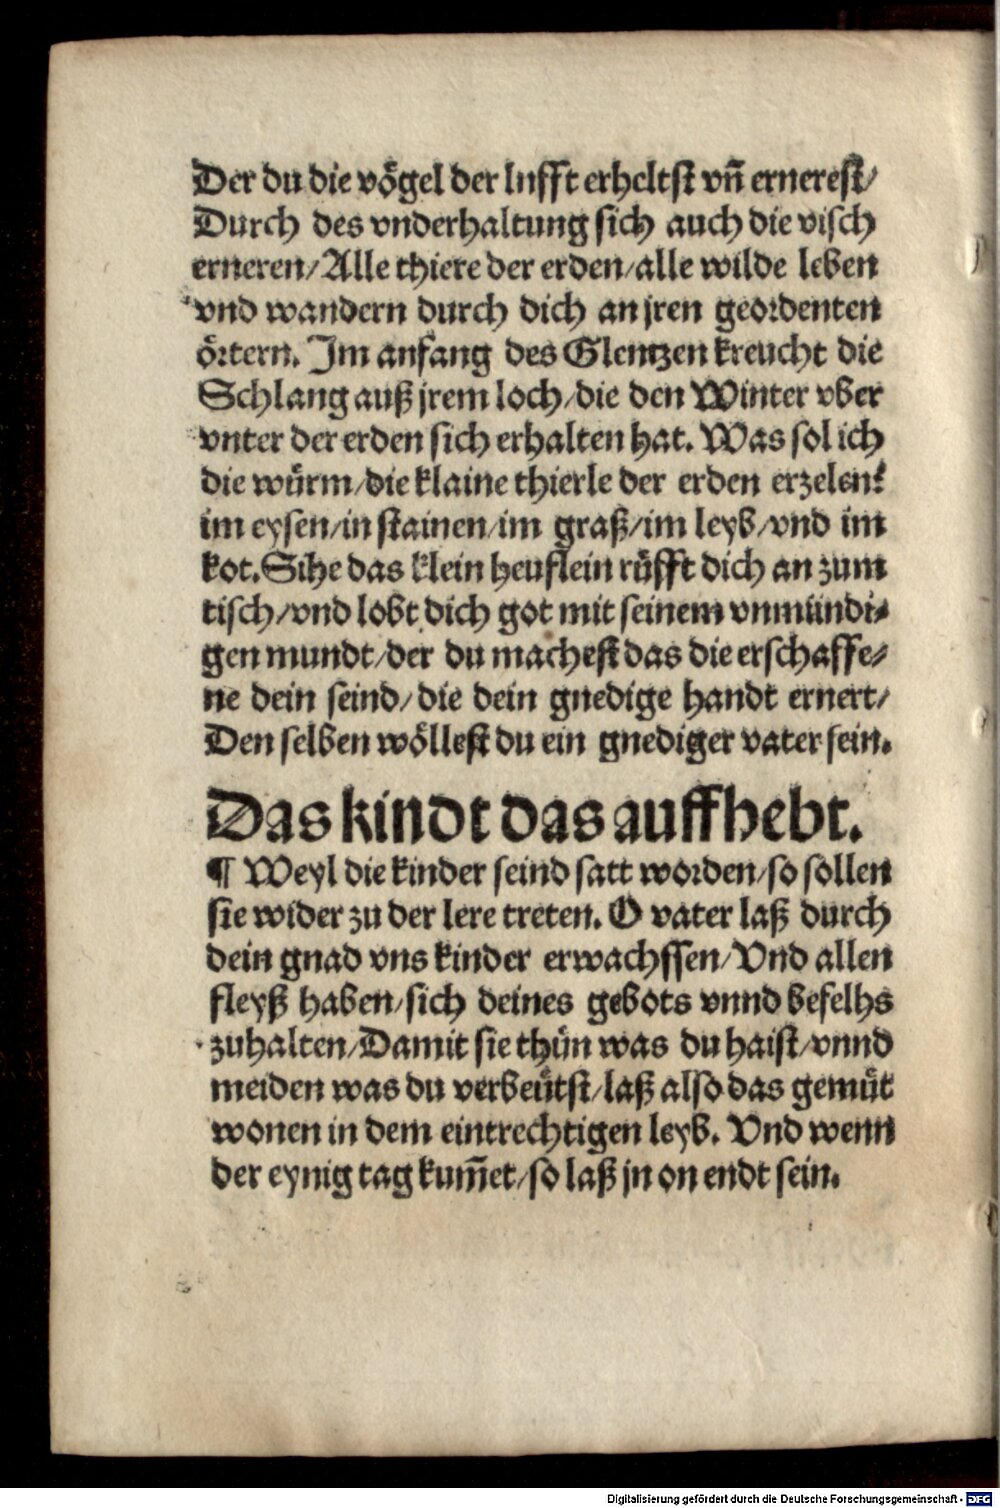 Der du die vögel der lufft erheltst vn̄ ernerest/
Durch des vnderhaltung sich auch die visch
erneren/Alle thiere der erden/alle wilde leben
vnd wandern durch dich an jren geordenten
örtern. Im anfang des Glentzen kreucht die
Schlang auß jrem loch/die den Winter vber
vnter der erden sich erhalten hat. Was sol ich
die würm/die klaine thierle der erden erzelen?
im eysen/in stainen/im graß/im leyb/vnd im
kot. Sihe das klein heuflein rüfft dich an zum
tisch/vnd lobt dich got mit seinem vnmündi⸗
gen mundt/der du machest das die erschaffe⸗
ne dein seind/die dein gnedige handt ernert/
Den selben wöllest du ein gnediger vater sein.
Das kindt das auffhebt.
¶ Weyl die kinder seind satt worden/so sollen
sie wider zu der lere treten. O vater laß durch
dein gnad vns kinder erwachssen/Vnd allen
fleyß haben/sich deines gebots vnnd befelhs
zuhalten/Damit sie thün was du haist/vnnd
meiden was du verbeütst/laß also das gemüt
wonen in dem eintrechtigen leyb. Vnd wenn
der eynig tag kum̄et/so laß jn on endt sein.
Digitalisierung gefördert durch die Deutsche Forschungsgemeinschaft - DFG